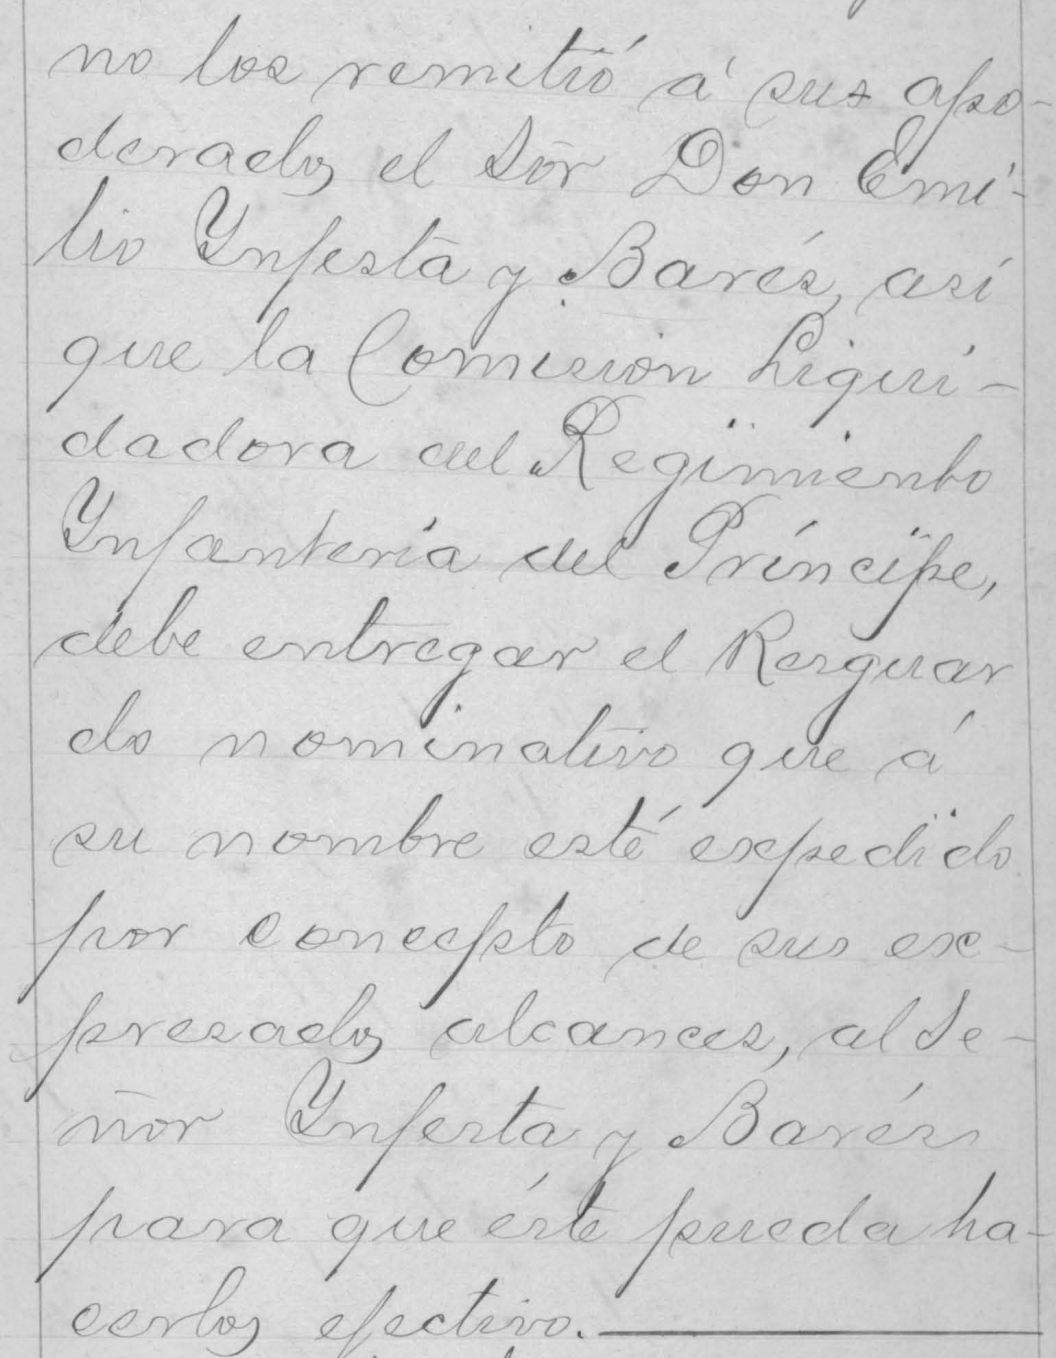 no los remitió á sus apo-
derados el Sōr Don Emi-
lio Ynfesta y Barés, así
que la Comision Liqui-
dadora del Regimiento
Ynfantería del Príncipe,
debe entregar el Resguar
do nominativo que á
su nombre esté expedido
por concepto de sus ex-
presados alcances, al Se-
ñor Ynfesta y Barés
para que éste pueda ha-
cerlos efectivo.